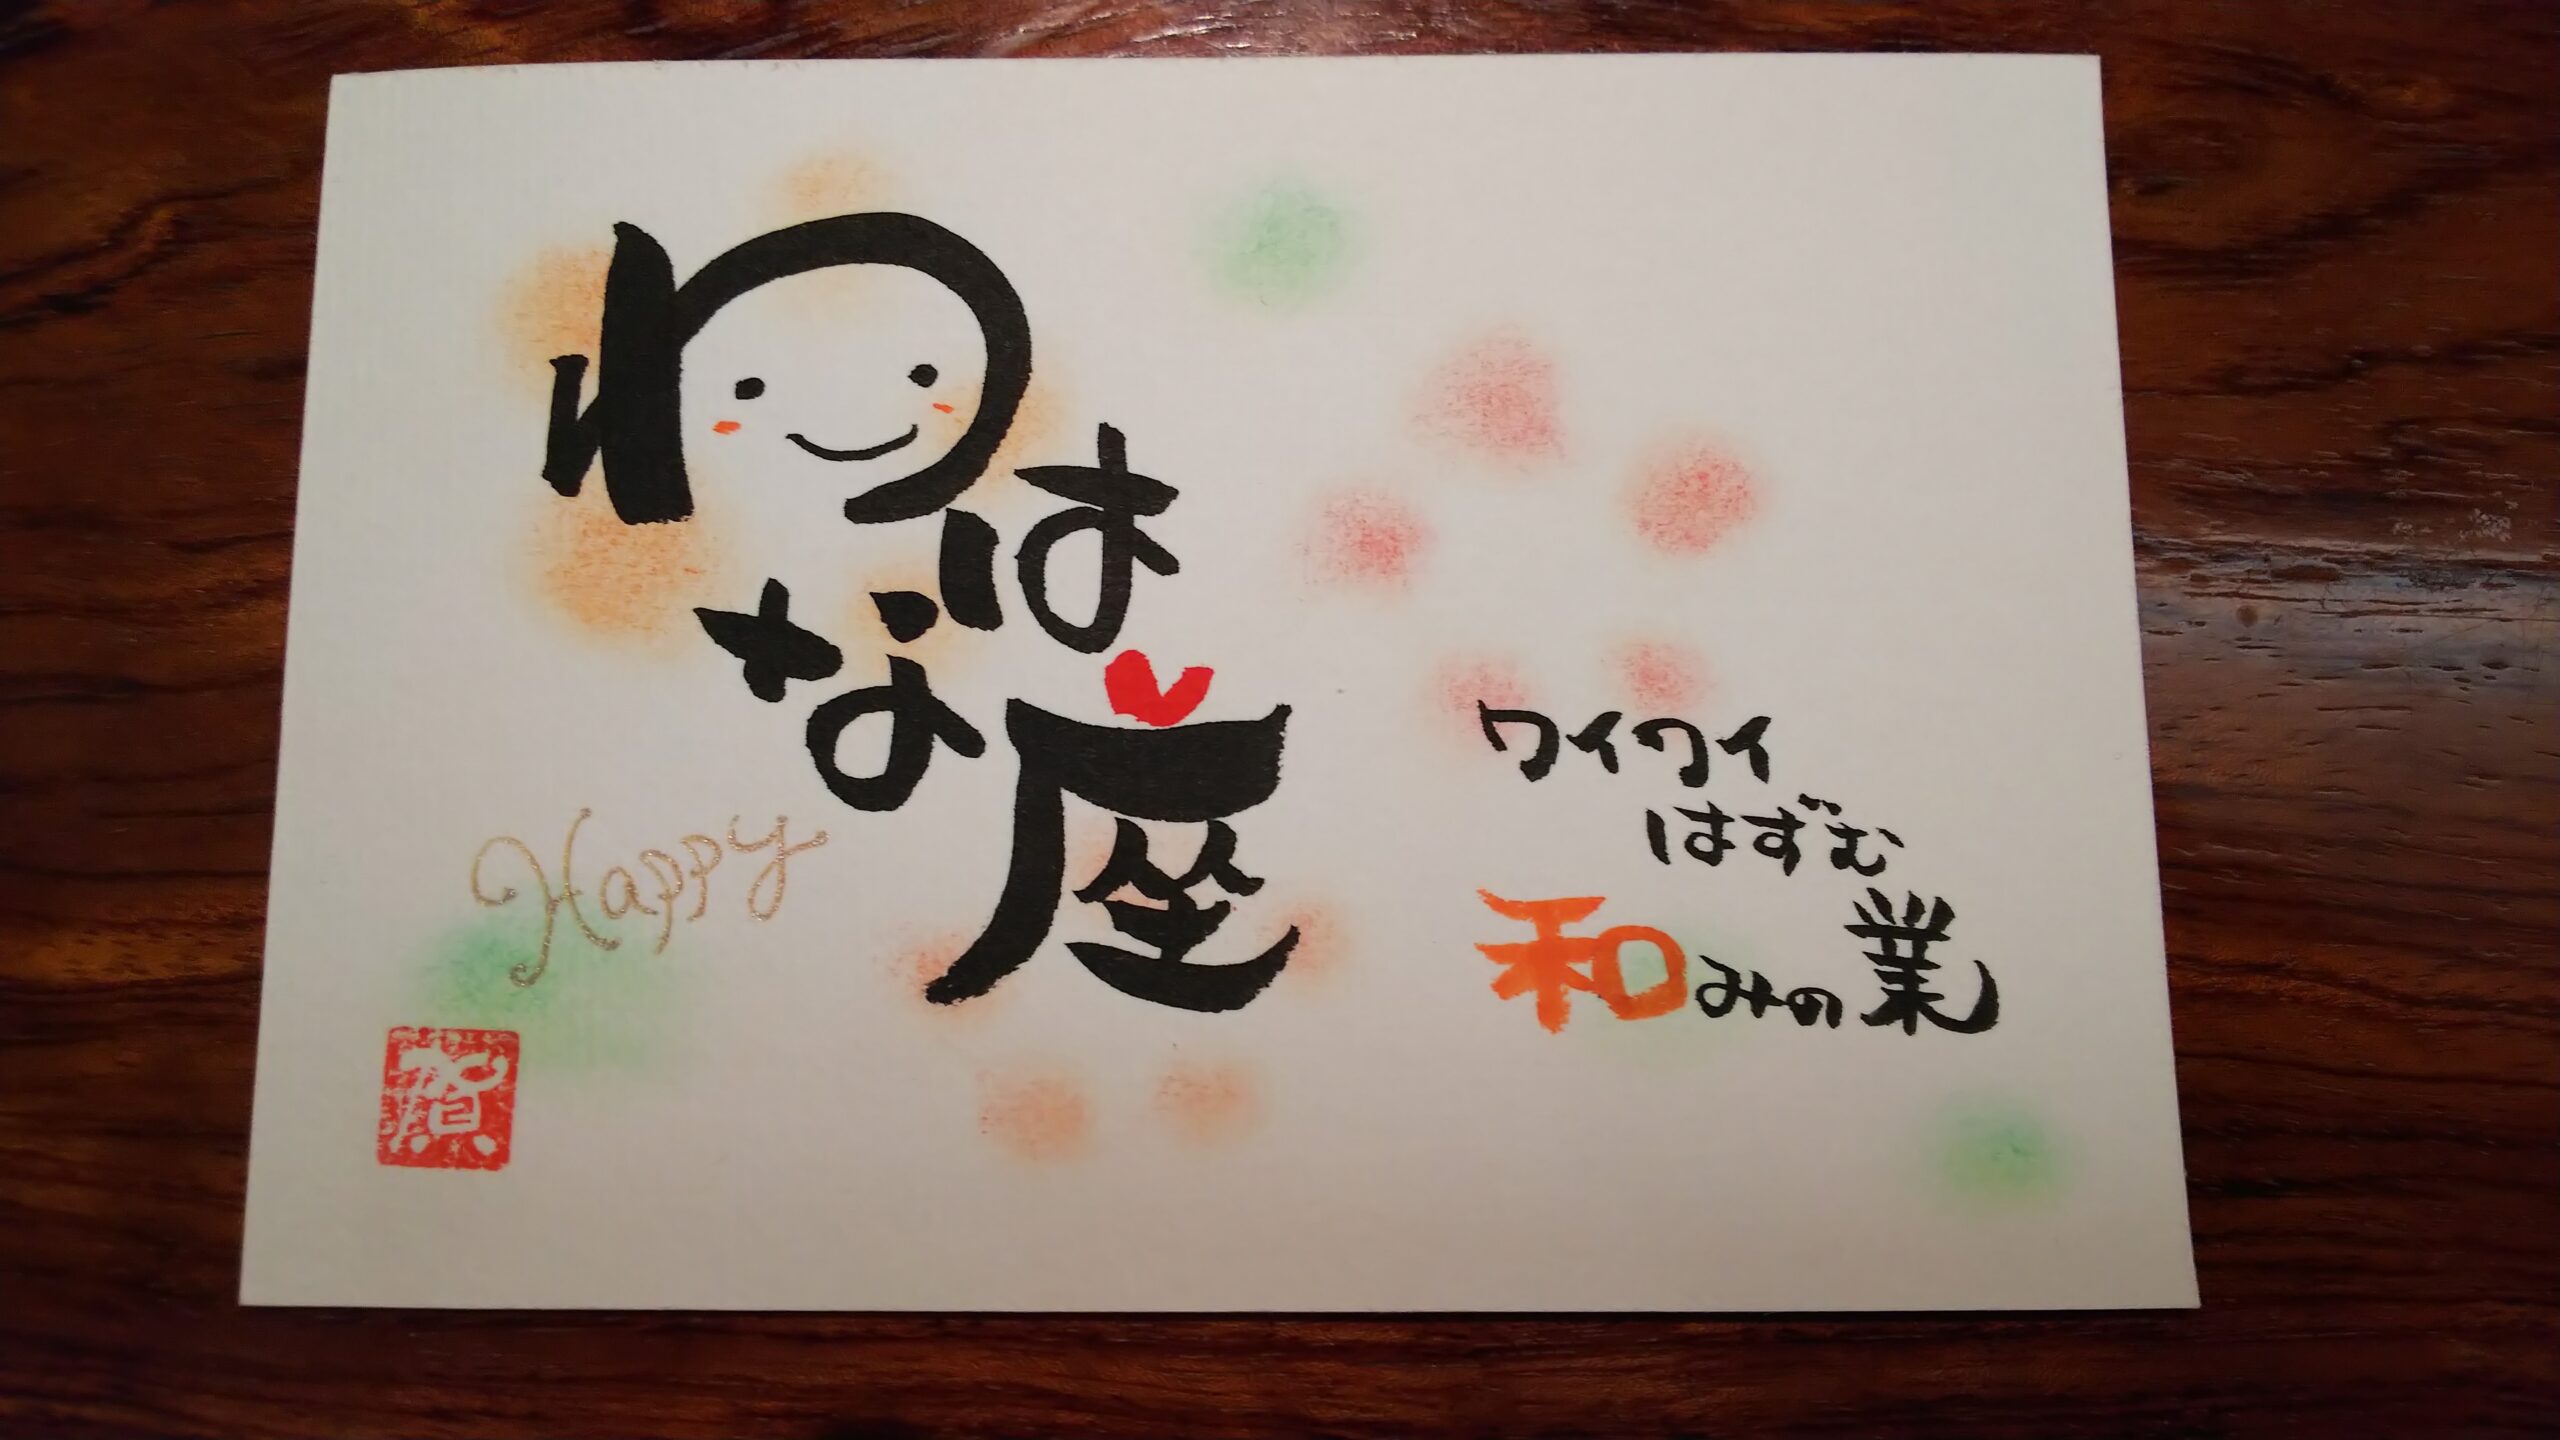 わはな座
ワイワイ
はずむ
和みの業
Happy
賀